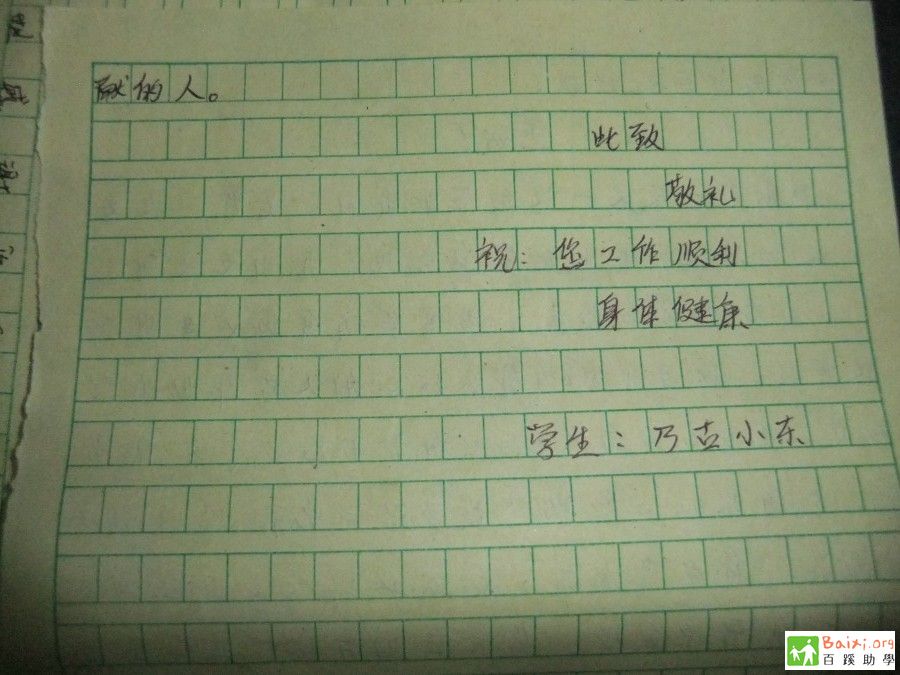 献的人。
此致
敬礼
祝：您工作顺利
身体健康
学生：乃古小东
Baixi.org
百蹊助學